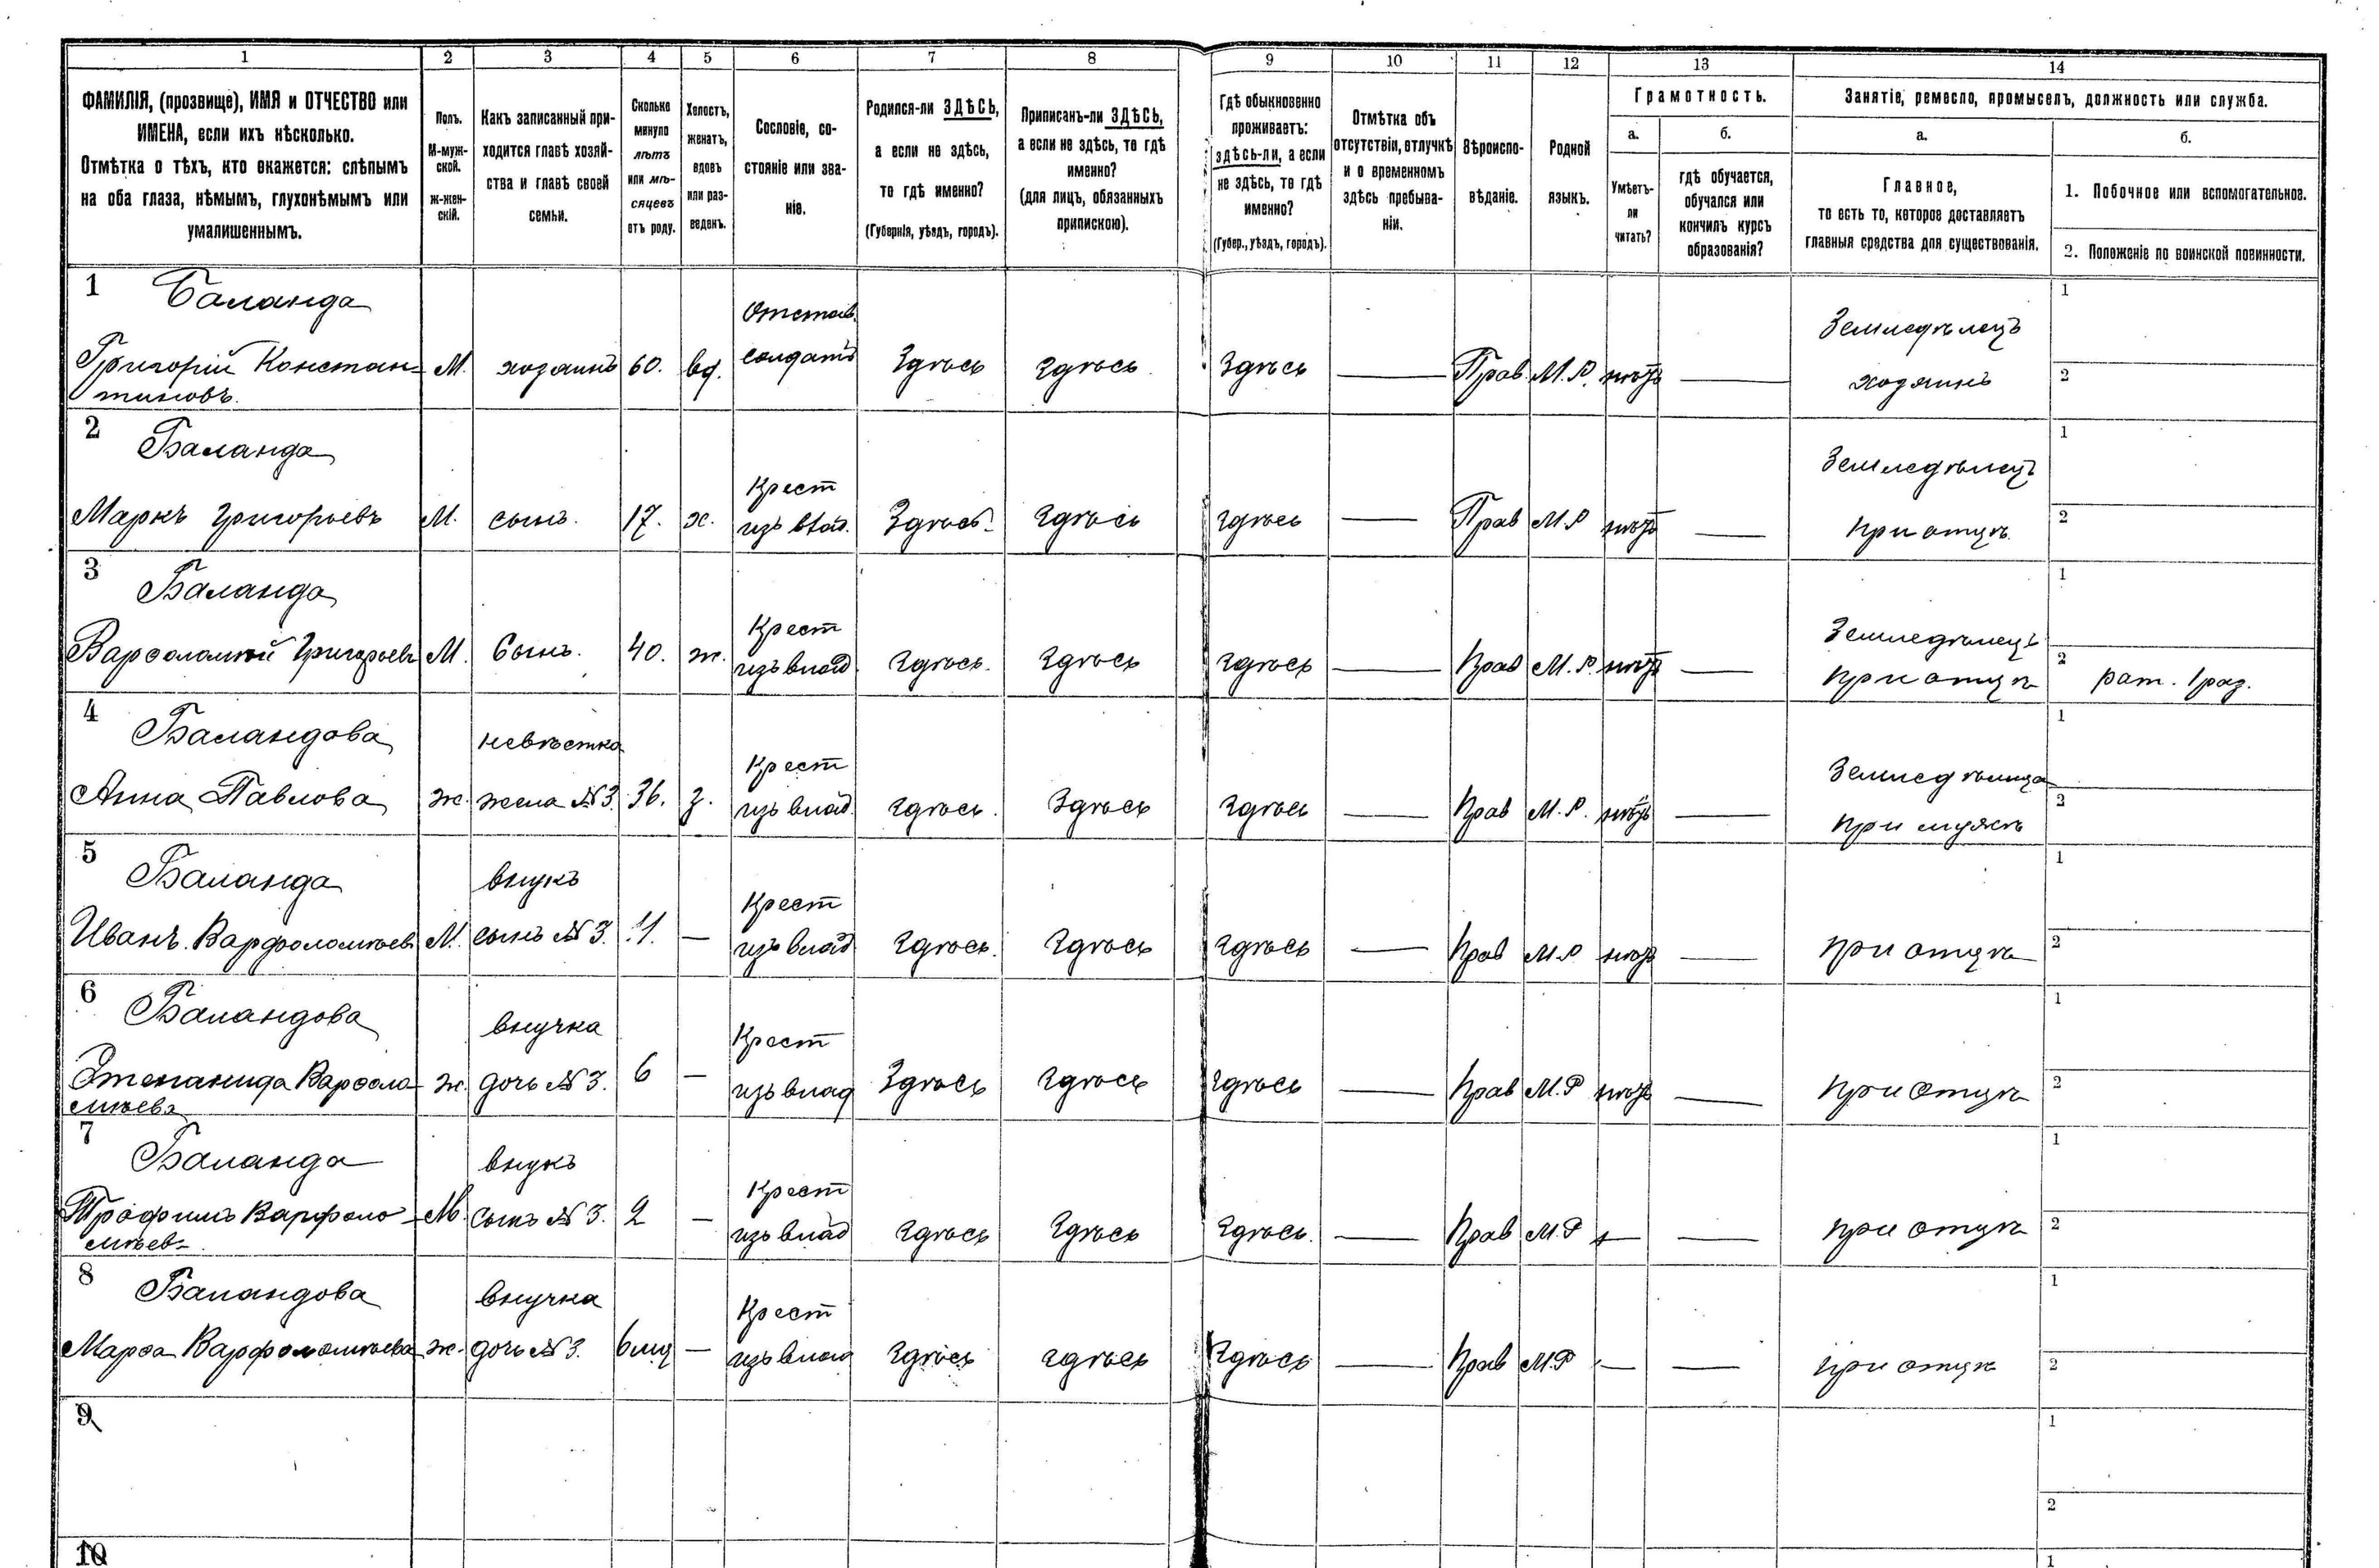 1 2 3 4 5 6 7 8 9 10 11 12 13 14
ФАМИЛІЯ, (прозвище), ИМЯ и ОТЧЕСТВО или
ИМЕНА, если ихъ нѣсколько.
Отмѣтка о тѣхъ, кто окажется: слѣпымъ
на оба глаза, нѣмымъ, глухонѣмымъ или
умалишеннымъ.
Полъ.
М-муж-
ской.
ж-жен-
скій.
Какъ записанный при-
ходится главѣ хозяй-
ства и главѣ своей
семьи.
Сколько
минуло
лѣтъ
или мѣ-
сяцевъ
отъ роду.
Холостъ,
женатъ,
вдовъ
или раз-
веденъ.
Сословіе, со-
стояніе или зва-
ніе.
Родился-ли ЗДѢСЬ,
а если не здѣсь,
то гдѣ именно?
(Губернія, уѣздъ, городъ).
Приписанъ-ли ЗДѢСЬ,
а если не здѣсь, то гдѣ
именно?
(для лицъ, обязанныхъ
припискою).
Гдѣ обыкновенно
проживаетъ:
здѣсь-ли, а если
не здѣсь, то гдѣ
именно?
(Губер., уѣздъ, городъ).
Отмѣтка объ
отсутствіи, отлучкѣ
и о временномъ
здѣсь пребыва-
ніи.
Вѣроиспо-
вѣданіе.
Родной
языкъ.
Грамотность.
а.
Умѣетъ-
ли
читать?
б.
гдѣ обучается,
обучался или
кончилъ курсъ
образованія?
Занятіе, ремесло, промыселъ, должность или служба.
а.
Главное,
то есть то, которое доставляетъ
главныя средства для существованія.
б.
1. Побочное или вспомогательное.
2. Положеніе по воинской повинности.
1 Баланда Отстав. Земледѣлецъ 1
Григорій Констан= М. хозяинъ 60. вд. солдатъ Здѣсь здѣсь Здѣсь — Прав М.Р. нѣтъ — хозяинъ 2
тиновъ.
2 Баланда Крест Земледѣлецъ 1
Маркъ Григорьевъ М. сынъ. 17. х. изъ влад. Здѣсь здѣсь здѣсь — Прав М.Р нѣтъ — при отцѣ. 2
3 Баланда Крест Земледѣлецъ 1
Варѳоломѣй Григорьевъ М. Сынъ. 40. ж. изъ влад здѣсь. здѣсь здѣсь — Прав М.Р. нѣтъ — при отцѣ 2 рат. 1 раз.
4 Баландова невѣстка Крест Земледѣлица 1
Анна Павлова ж. жена №3. 36. з. изъ влад. здѣсь. Здѣсь здѣсь — Прав М.Р. нѣтъ — при мужѣ 2
5 Баланда внукъ Крест 1
Иванъ Варфоломѣевъ М. сынъ №3. 11. — изъ влад здѣсь. здѣсь здѣсь — Прав М.Р нѣтъ — при отцѣ 2
6 Баландова внучка Крест 1
Степанида Варѳоло- ж. дочь №3. 6 — изъ влад Здѣсь здѣсь здѣсь — Прав М.Р нѣтъ — при отцѣ 2
мѣева
7 Баланда внукъ Крест 1
Трофимъ Варфоло- М. сынъ №3. 2 — изъ влад здѣсь здѣсь здѣсь. — Прав М.Р — — при отцѣ 2
мѣев-
8 Баландова внучка Крест 1
Марѳа Варфоломѣева ж. дочь №3. 6 мц — изъ влад здѣсь здѣсь здѣсь — Прав М.Р — — при отцѣ 2
9 1
2
10 1